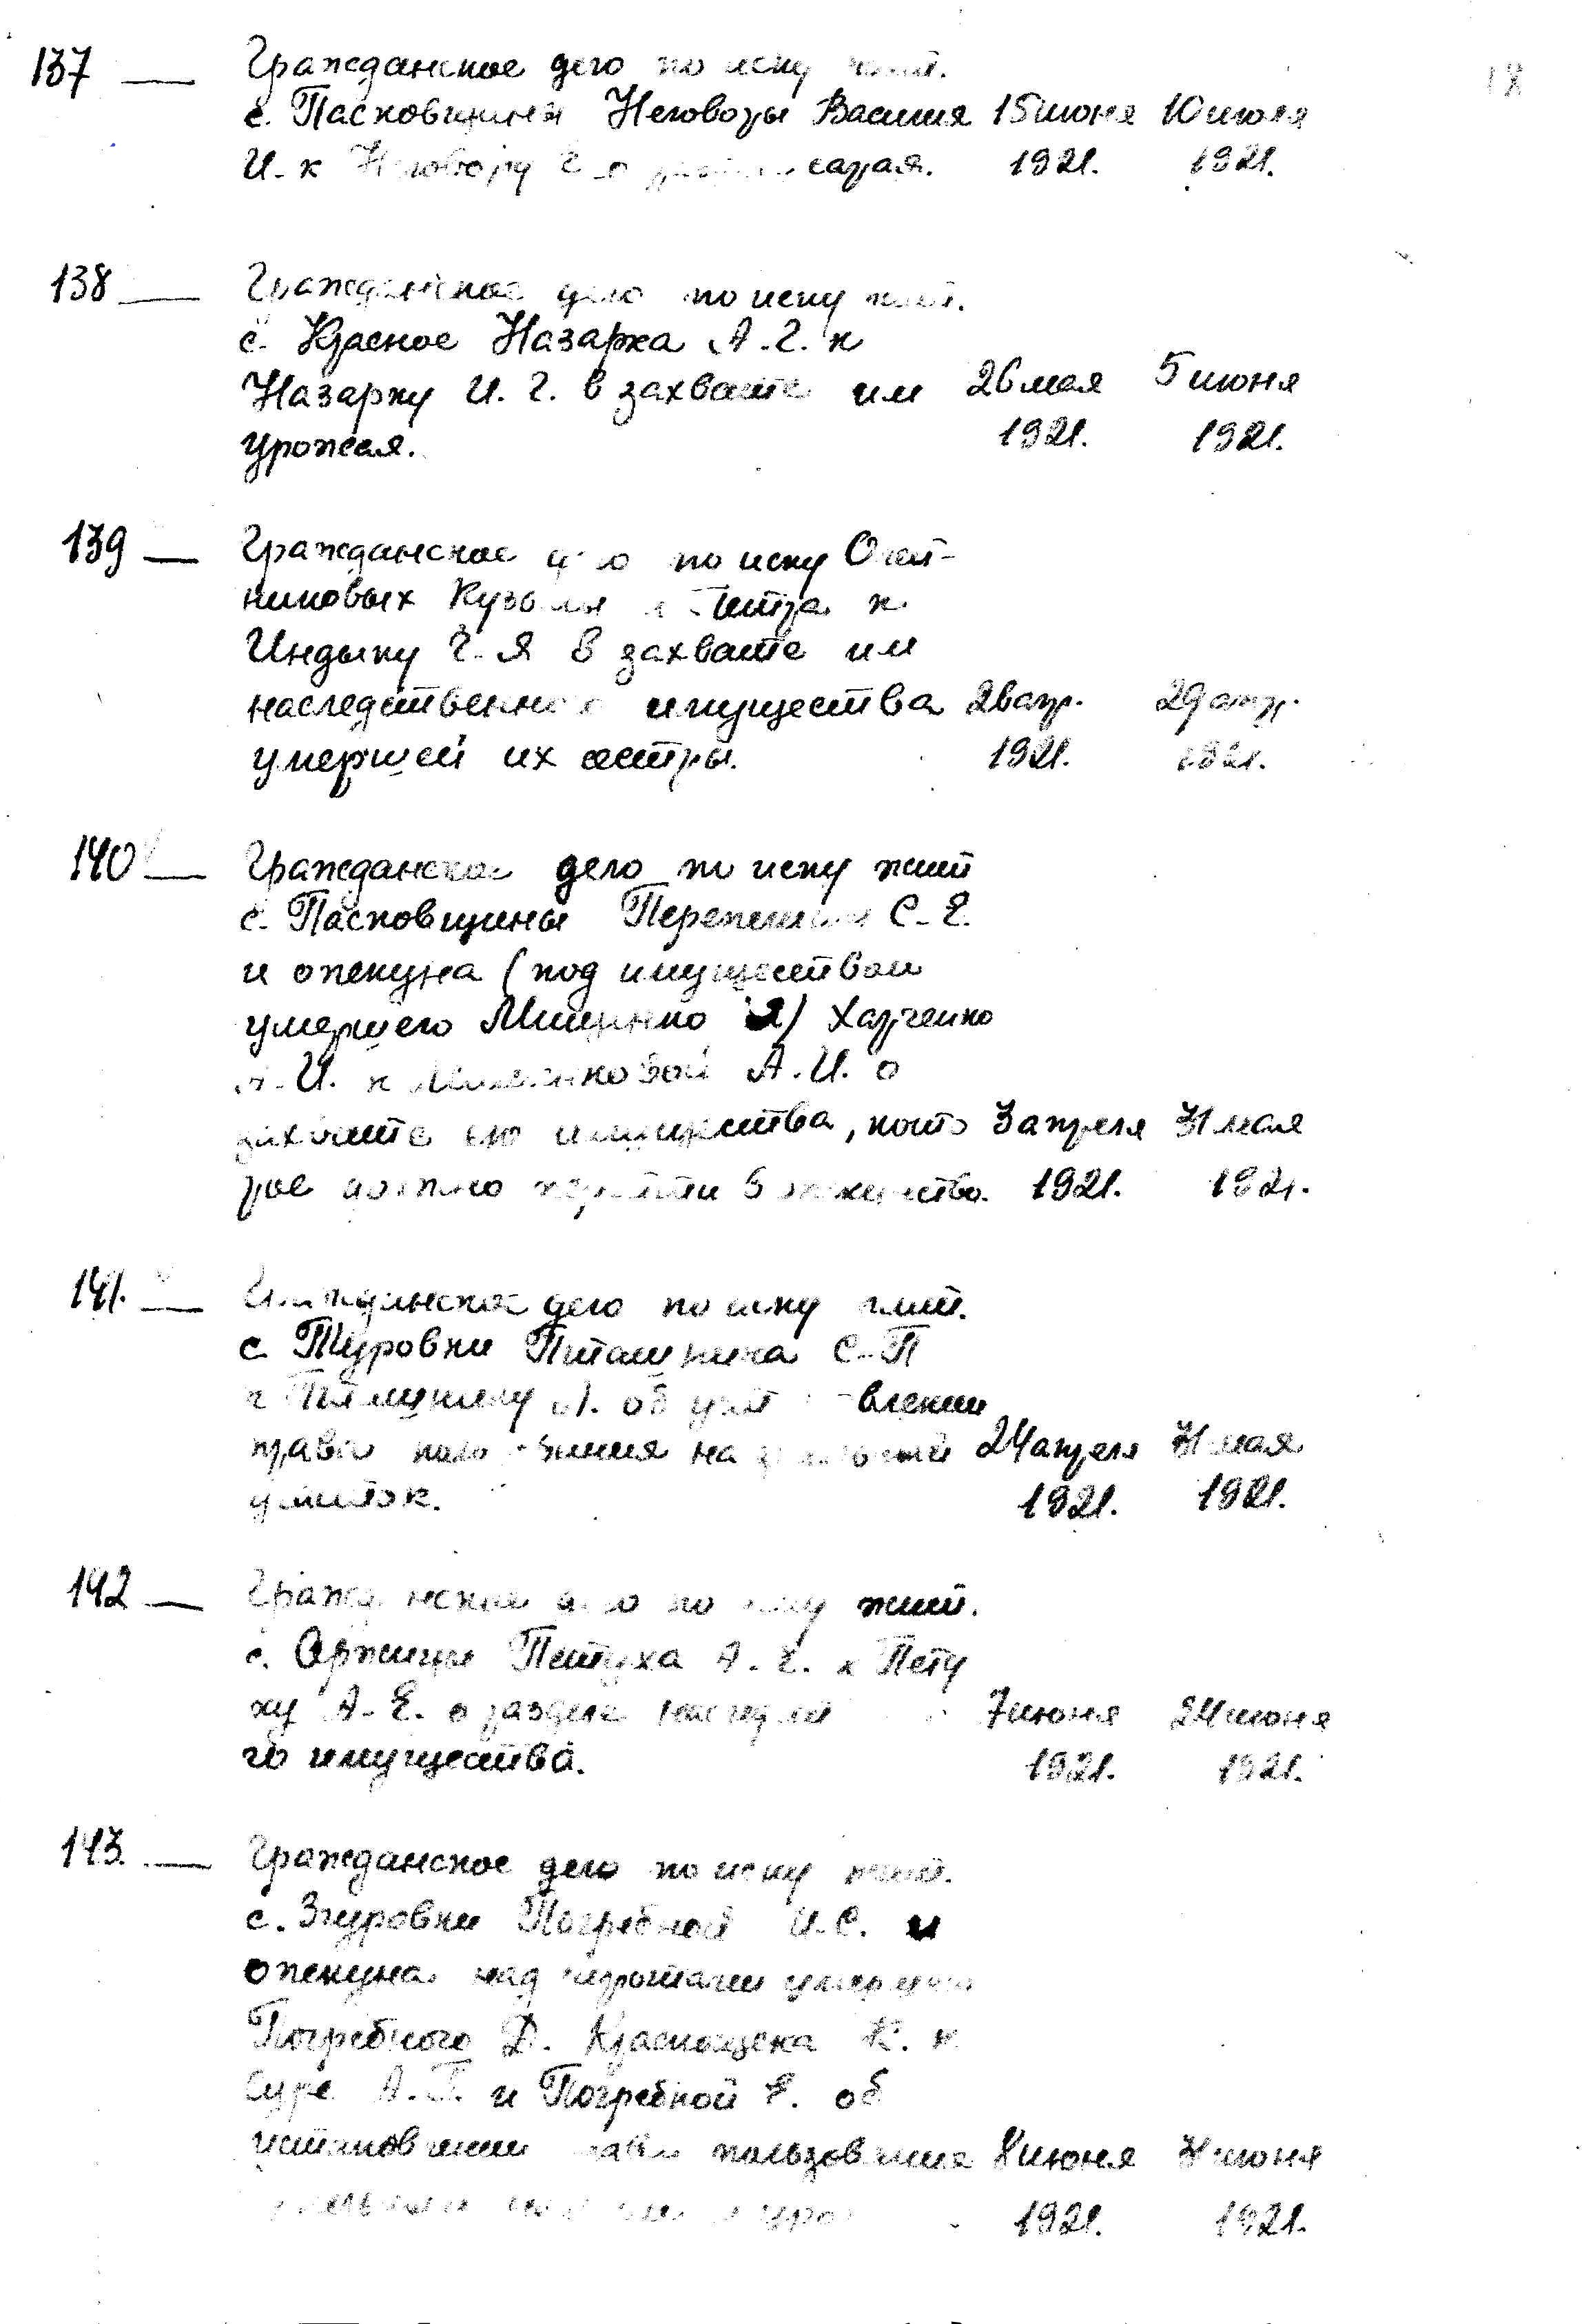 18
137 — Гражданское дело по иску жит.
с. Пасковщины Неговоры Василия 15 июня 10 июля
И. к Неговору Г. о сарая. 1921. 1921.
138 — Гражданское дело по иску жит.
с. Красное Назарка А.Г. к
Назарку И.Г. в захвате им 26 мая 5 июня
урожая. 1921. 1921.
139 — Гражданское дело по иску
никовых Кузьмы и Петра к
Индыку Г.Я в захвате им
наследственного имущества 26 апр. 29 апр.
умершей их сестры. 1921. 1921.
140 — Гражданское дело по иску жит
с. Пасковщины С.Е.
и опекуна (под имуществом
умершего Мищенко Я) Харченко
И. к А.И. о
захвате его имущества, кото 3 апреля 31 мая
рое должно перейти в опекунство. 1921. 1921.
141. — Гражданское дело по иску жит.
с. Туровки Пташника С.П
к Пташнику А. об установлении
права пользования на участок 24 апреля 31 мая
1921. 1921.
142 — Гражданское дело по иску жит.
с. Оржицы Петуха А.Г. к Пету
ху А.Е. о разделе наследственно 7 июня 24 июня
го имущества. 1921. 1921.
143. — Гражданское дело по иску жит.
с. Згуровки Погребной И.С. и
опекуна над сиротами умершего
Погребного Д. Краснощека К. к
Суре А.Г. и Погребной Е. об
установлении права пользования 8 июня июня
1921. 1921.